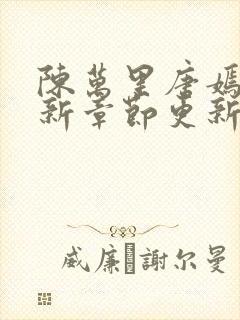 陳萬里唐嫣
新章節更新
威廉·謝尔曼
HARNDEN